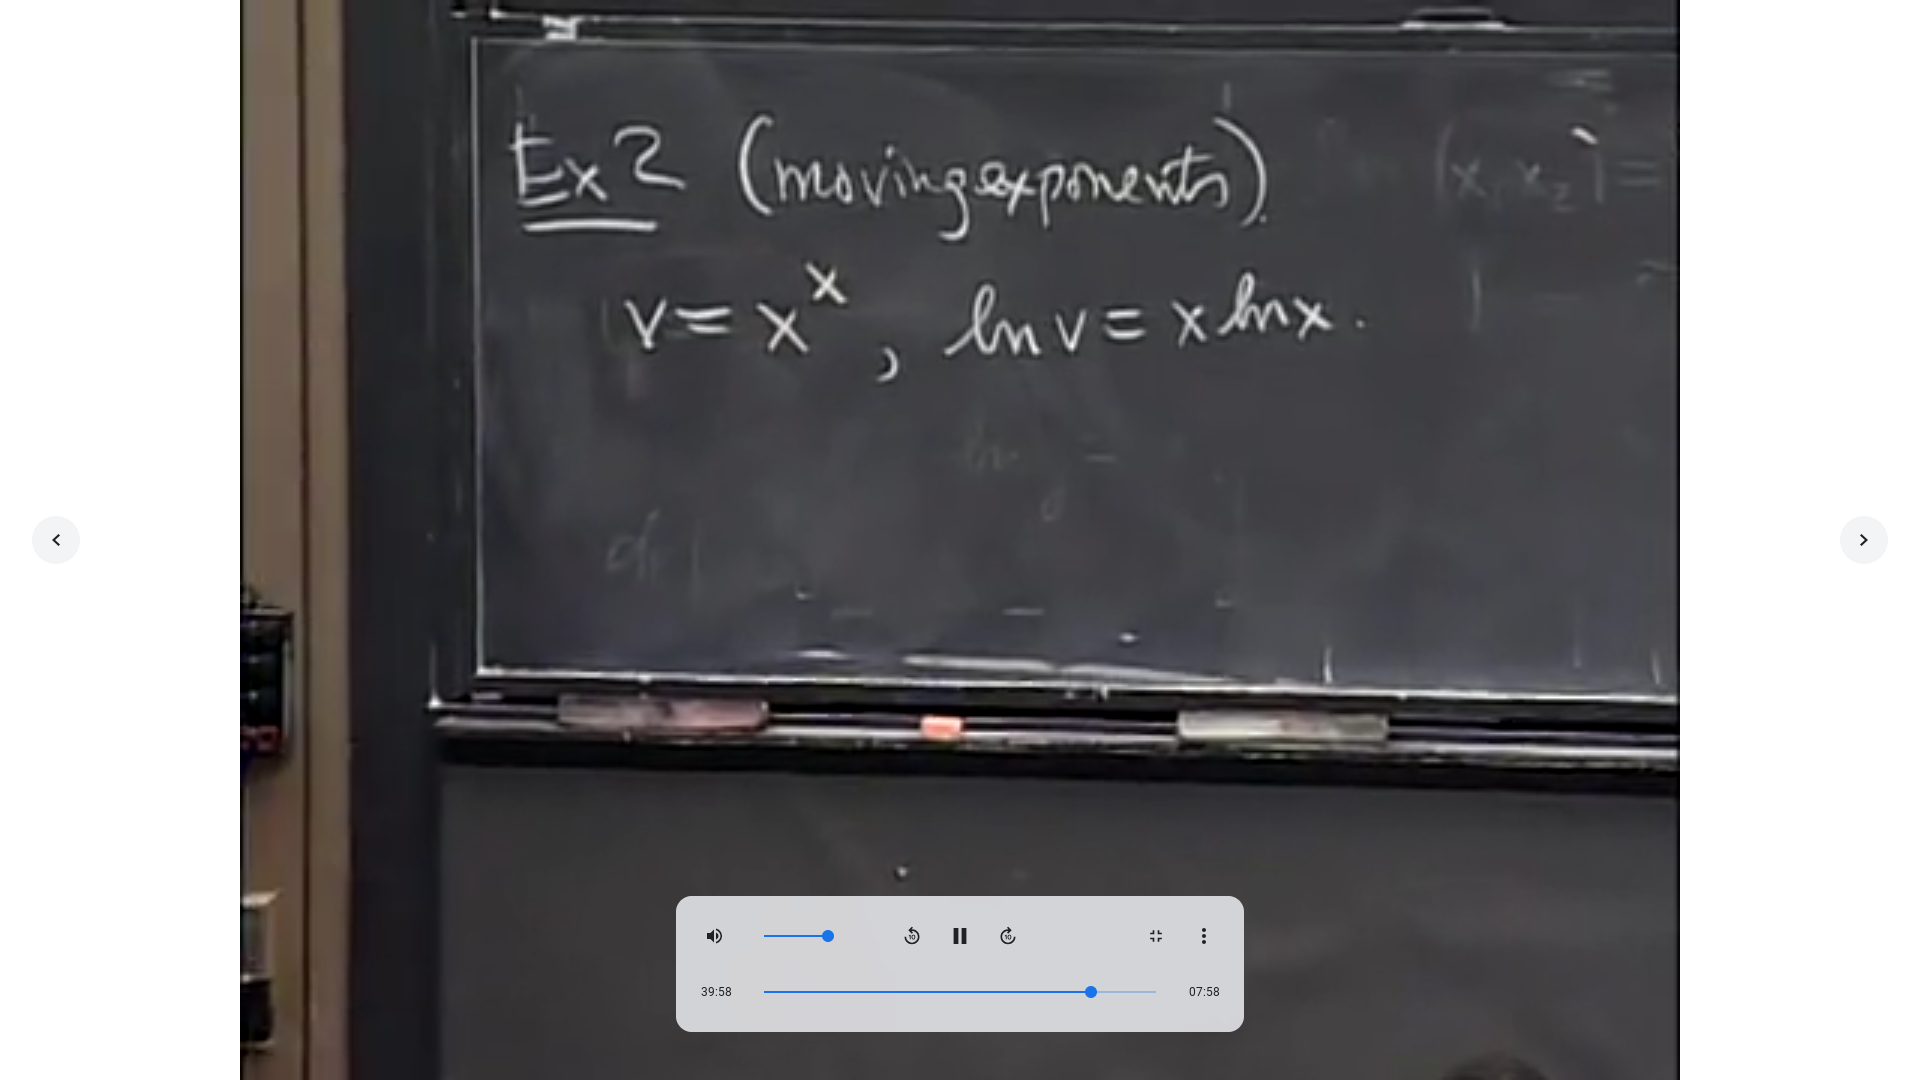 Ex 2 (moving exponents).
v = x^x, ln v = x ln x.
(x, x₂) =
39:58 07:58